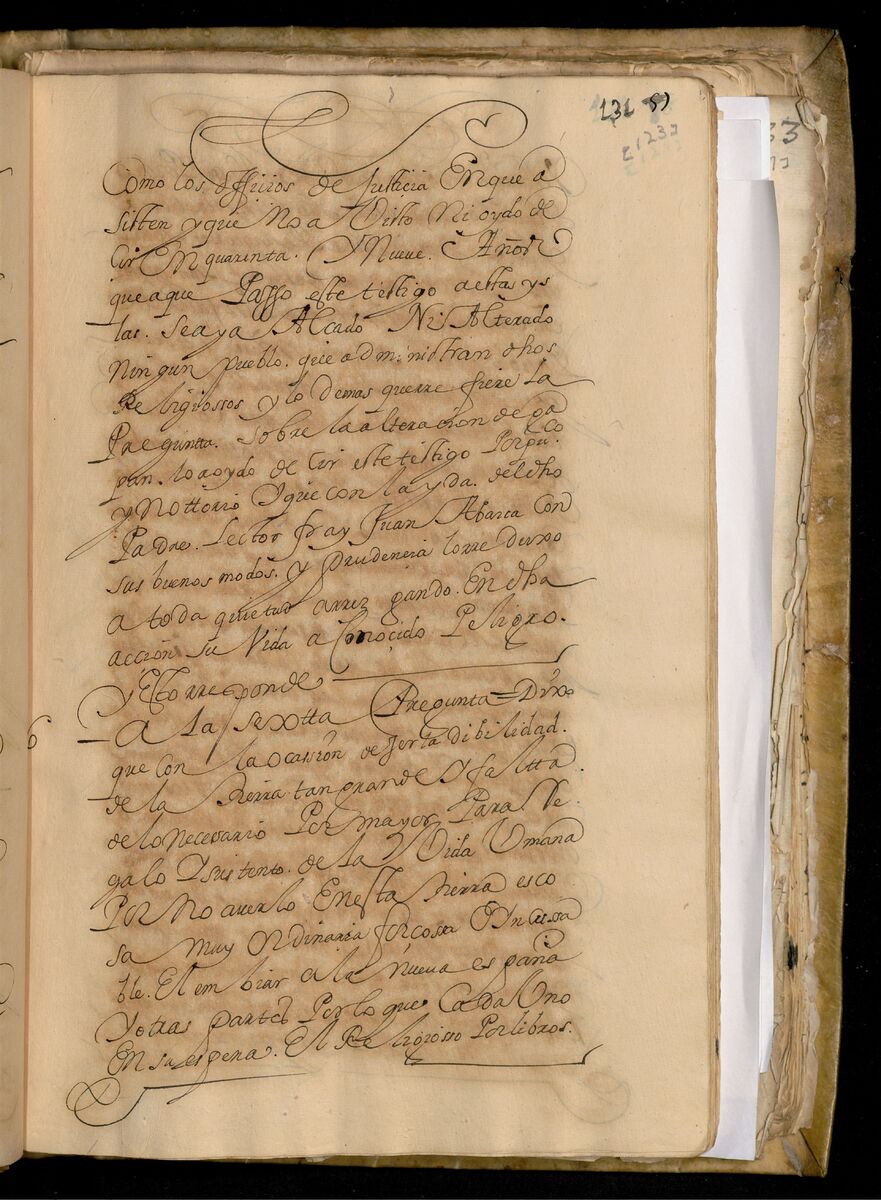 131 87
[123]
Como los offiçios de Justicia En que a
sisten y que No a Visto Ni oydo de
Cir En quarinta. Y Nueve. Años
que a que Passo este testigo a estas ys
las. Se aya Alcado Ni Alterado
Ningun Pueblo. que administran dhos
Religiossos y lo demas que rre fiere La
Pregunta. Sobre la alteracion de pa
pan. lo a oydo de Cir este testigo Por puco
y Nottorio Y que con la yda. del dho
Padre. Lector fray Juan Abarca Con
sus buenos modos. y prudencia lo rre duxo
a toda quietud arriz gando. En dha
acción su Vida a Conocido Peligro.
y Esto rresponde
A La sextta Pregunta = Dixo
que Con la ocassion de
de la tierra tan grande Y falta
de lo Necesario Por mayor Para Re
galo Y sustento. de la Vida Umana
Por No averlo En esta tierra es co
sa muy ordinaria forcosa O Yn cussa
ble. El em biar a la Nueva españa
Y otras partes Por lo que Cada Uno
En su es pera. El Religiosso Por libros.